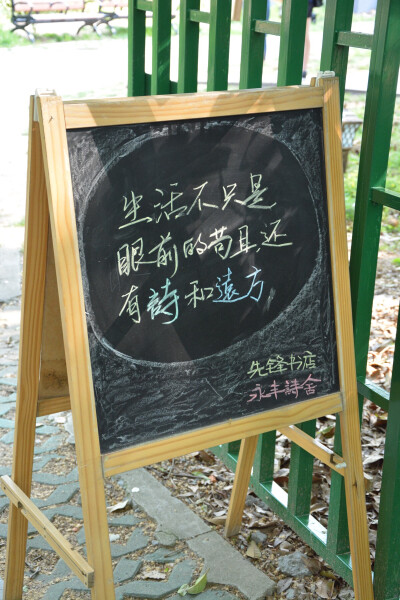 生活不只是
眼前的苟且还
有詩和遠方
先锋书店
永丰詩舍